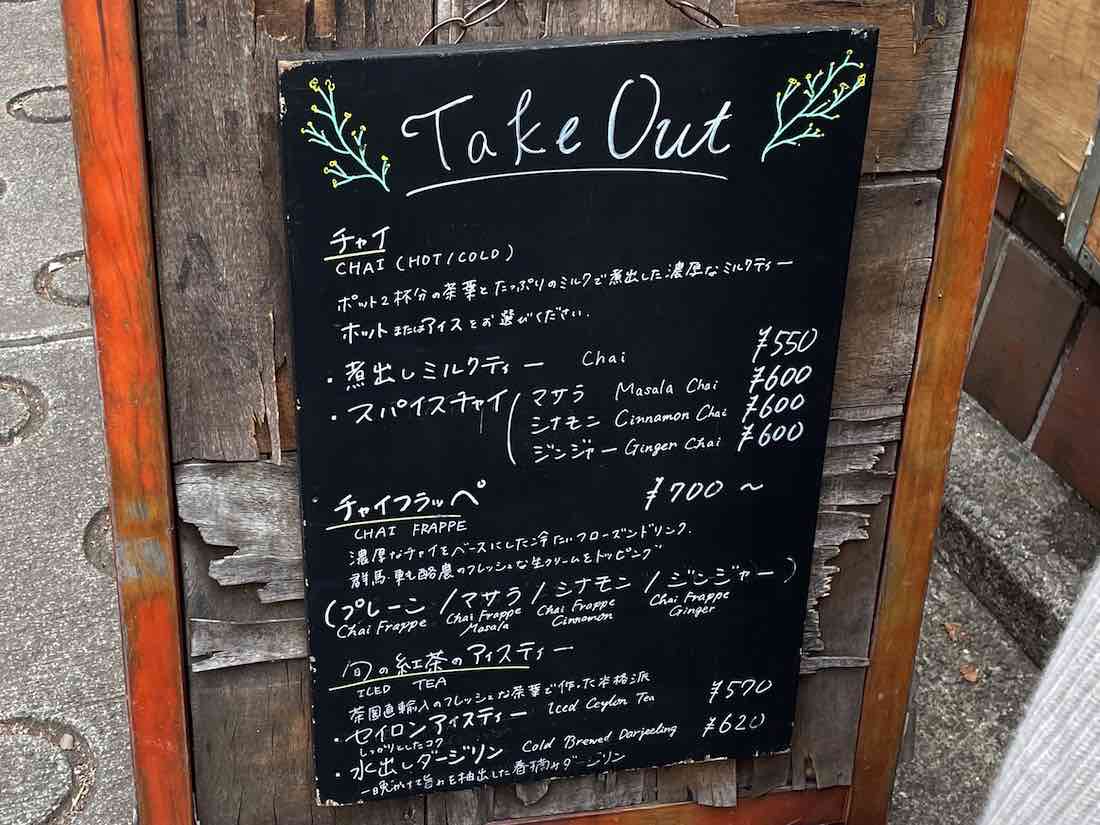 Take Out
チャイ
CHAI (HOT/COLD)
ポット2杯分の茶葉とたっぷりのミルクで煮出した濃厚なミルクティー
ホットまたはアイスをお選びください.
・煮出しミルクティー Chai ¥550
・スパイスチャイ ( マサラ Masala Chai ¥600
シナモン Cinnamon Chai ¥600
ジンジャー Ginger Chai ¥600
チャイフラッペ ¥700 ~
CHAI FRAPPE
濃厚なチャイをベースにした冷たいフローズンドリンク.
群馬・酪農のフレッシュな生クリームをトッピング
(プレーン / マサラ / シナモン / ジンジャー )
Chai Frappe Chai Frappe Masala Chai Frappe Cinnamon Chai Frappe Ginger
旬の紅茶のアイスティー
ICED TEA
茶園直輸入のフレッシュな茶葉で作った本格派
・セイロンアイスティー Iced Ceylon Tea ¥570
しっかりとしたコク
・水出しダージリン Cold Brewed Darjeeling ¥620
一晩かけて旨みを抽出した春摘みダージリン